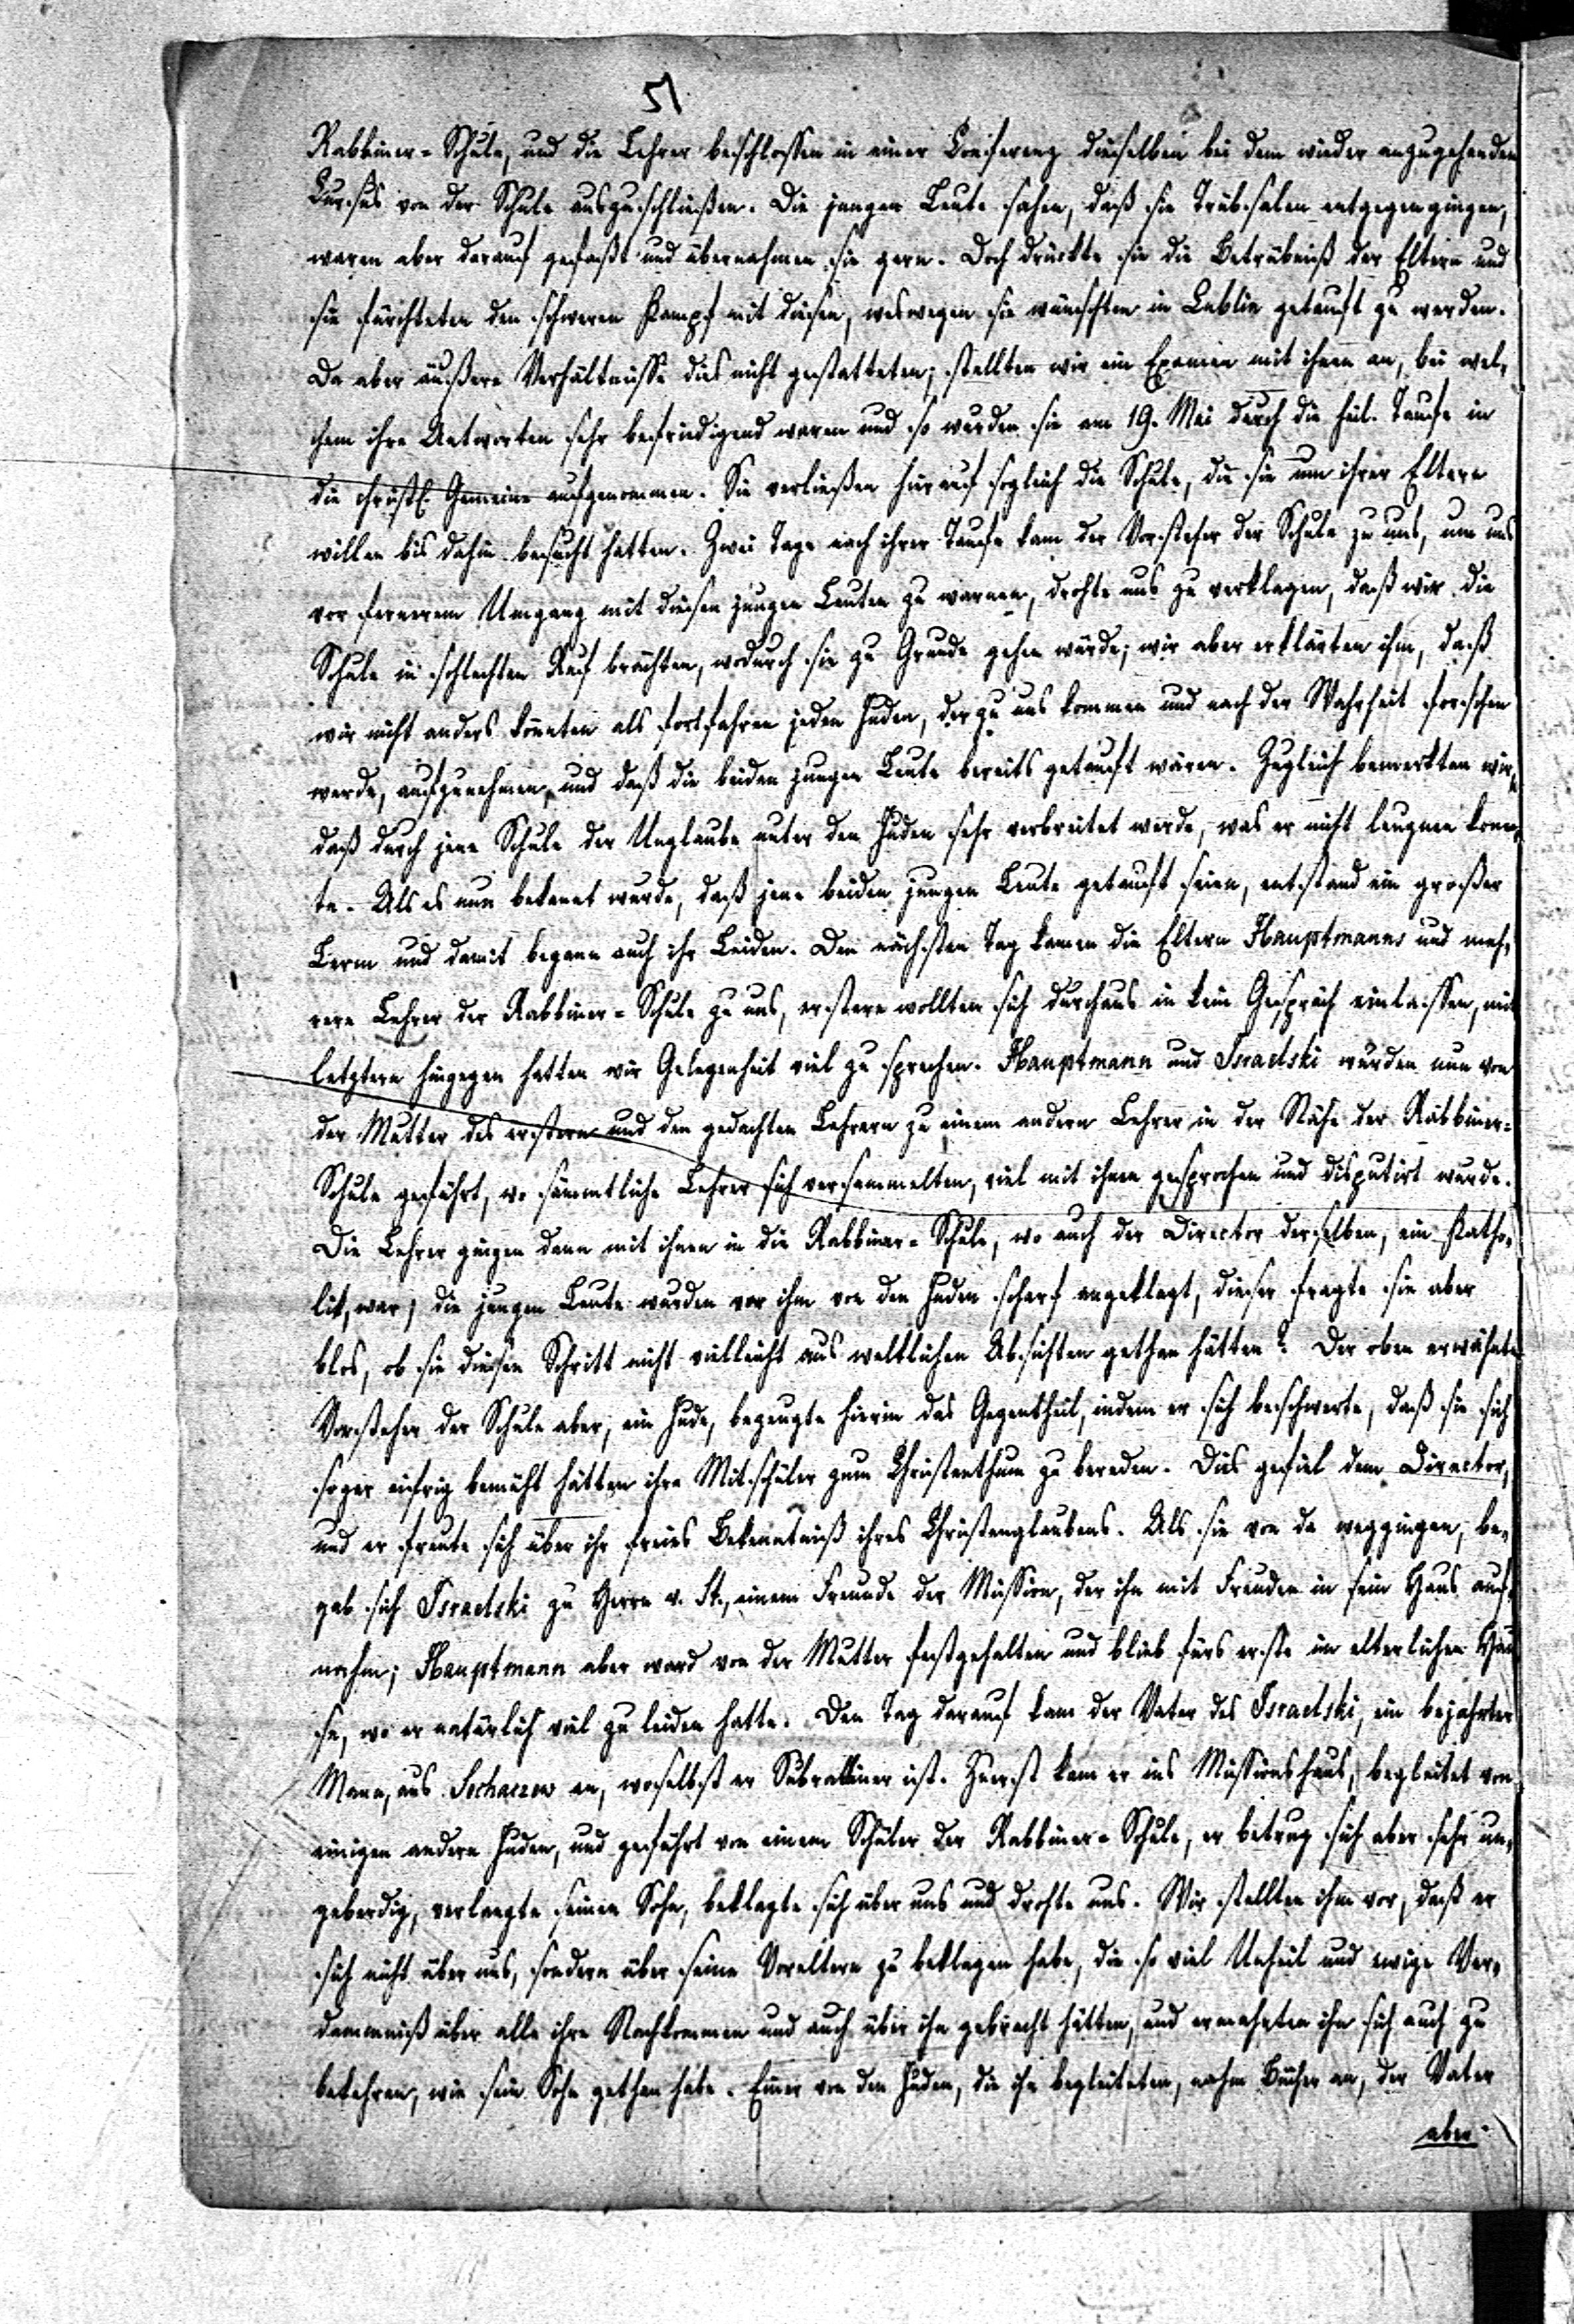 51
Rabbiner-Schule, und die Lehrer beschlossen in einer Conferenz dieselben bei dem wieder anzugehenden
Cursus von der Schule auszuschließen. Die jungen Leute sahen, daß sie Trübsalen entgegen gingen,
waren aber darauf gefaßt und übernahmen sie gern. Doch drückte sie die Betrübniß der Eltern und
sie fürchteten den schweren Kampf mit diesen, weswegen sie wünschten in Lublin getauft zu werden.
Da aber äußere Verhältnisse dies nicht gestatteten, stellten wir ein Examen mit ihnen an, bei wel-
chem ihre Antworten sehr befriedigend waren und so wurden sie am 19. Mai durch die heil. Taufe in
die christl. Gemeine aufgenommen. Sie verließen hierauf sogleich die Schule, die sie um ihrer Eltern
willen bis dahin besucht hatten. Zwei Tage nach ihrer Taufe kam der Vorsteher der Schule zu uns, um uns
vor fernerem Umgang mit diesen jungen Leuten zu warnen, drohte uns zu verklagen, daß wir die
Schule in schlechten Ruf brächten, wodurch sie zu Grunde gehen würde; wir aber erklärten ihm, daß
wir nicht anders könnten als fortfahren jeden Juden, der zu uns kommen und nach der Wahrheit forschen
werde, aufzunehmen, und daß die beiden jungen Leute bereits getauft wären. Zugleich bemerkten wir,
daß durch jene Schule der Unglaube unter den Juden sehr verbreitet werde, was er nicht leugnen konn-
te. Als es nun bekannt wurde, daß jene beiden jungen Leute getauft seien, entstand ein großer
Lerm und damit began auch ihr Leiden. Den nächsten Tag kamen die Eltern Hauptmanns und meh-
rere Lehrer der Rabbiner-Schule zu uns, erstere wollten sich durchaus in kein Gespräch einlassen, mit
letztern hingegen hatten wir Gelegenheit viel zu sprechen. Hauptmann und Israelski wurden nun von
der Mutter des erstern und den gedachten Lehrern zu einem andern Lehrer in der Nähe der Rabbiner-
Schule geführt, wo sämmtliche Lehrer sich versammelten, viel mit ihnen gesprochen und disputirt wurde.
Die Lehrer gingen dann mit ihnen in die Rabbiner-Schule, wo auch der Director derselben, ein Katho-
lik, war; die jungen Leute wurden vor ihm von den Juden scharf angeklagt, dieser fragte sie aber
blos, ob sie diesen Schritt nicht vielleicht aus weltlichen Absichten gethan hätten? Der oben erwähnte
Vorsteher der Schule aber, ein Jude, bezeugte hierin das Gegentheil, indem er sich beschwerte, daß sie sich
sogar eifrig bemüht hätten ihre Mitschüler zum Christenthum zu bereden. Dies gefiel dem Director,
und er freute sich über ihr freies Bekenntniß ihres Christenglaubens. Als sie von da weggingen, be-
gab sich Israelski zu Herrn v. St., einem Freunde der Mission, der ihn mit Freuden in sein Haus auf-
nahm; Hauptmann aber ward von der Mutter festgehalten und blieb fürs erste im elterlichen Hau-
se, wo er natürlich viel zu leiden hatte. Den Tag darauf kam der Vater des Israelski, ein bejahrter
Mann, aus Sochaczew an, woselbst er Subrabbiner ist. Zuerst kam er ins Missionshaus, begleitet von
einigen andern Juden, und geführt von einem Schüler der Rabbiner-Schule, er betrug sich aber sehr un-
geberdig, verlangte seinen Sohn, beklagte sich über uns und drohte uns. Wir stellten ihm vor, daß er
sich nicht über uns, sondern über seine Voreltern zu beklagen habe, die so viel Unheil und ewige Ver-
dammniß über alle ihre Nachkommen und auch über ihn gebracht hätten, und ermahnten ihn sich auch zu
bekehren, wie sein Sohn gethan habe. Einer von den Juden, die ihn begleiteten, nahm Bücher an, der Vater
aber